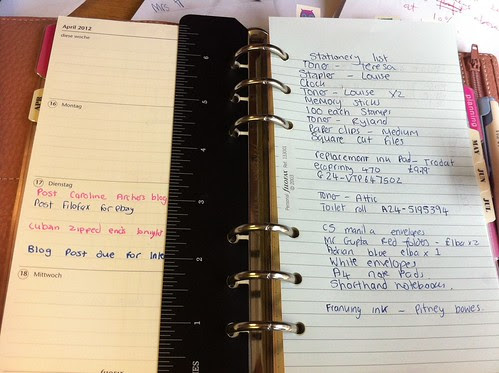 April 2012
diese woche
16 Montag
17 Dienstag
Post Caroline Archers blog
Post Filofax for ebay
Cuban zipped ends tonight
Blog Post due for
18 Mittwoch
6
5
4
3
2
1
APR
Stationery list
Toner - Teresa
Stapler - Louise
Clock
Toner - Louise x2
Memory sticks
100 each Stamps
Toner - Ryland
Paper clips - Medium
Square cut files
replacement ink pad - Trodat
ecoprinty 470
G24-VTP647502
Toner - Attic
Toilet roll A24-5195394
C5 manilla envelopes
Mr Gupta Red folder - elba x2
Adrian blue elba x 1
White envelopes
A4 note pads
Shorthand notebooks.
Franking ink - Pitney bowes.
Personal filofax
planning
MAY
JUN
JUL